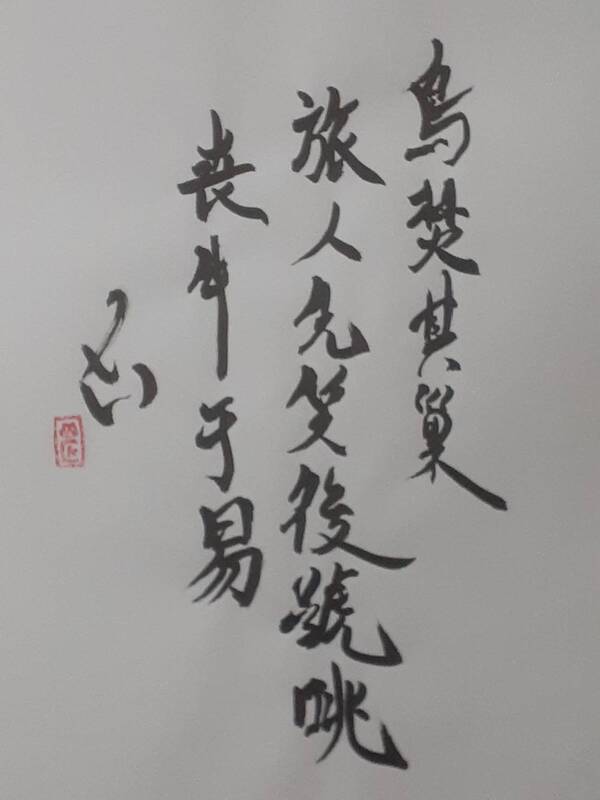 鳥焚其巢
旅人先笑後號咷
喪牛于易